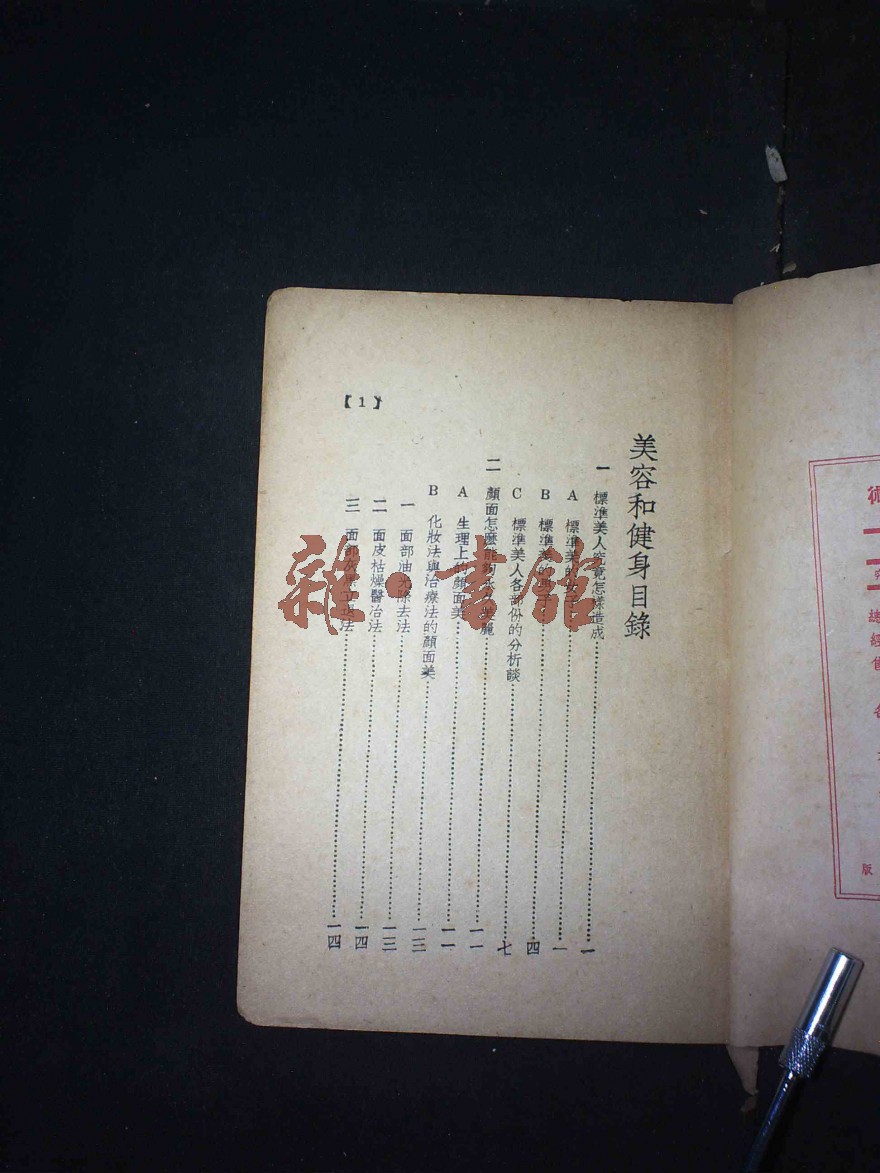 美容和健身目錄
一 標準美人究竟怎樣造成……一
A 標準美的女子……一
B 標準美的男子……四
C 標準美人各部份的分析談……七
二 顏面怎麼能夠永久美麗……一一
A 生理上的顏面美……一一
B 化妝法與治療法的顏面美……一三
一 面部油光除去法……一三
二 面皮枯燥醫治法……一四
三 面部……法……一四
【1】
雜·書館
術
總經售
各
版